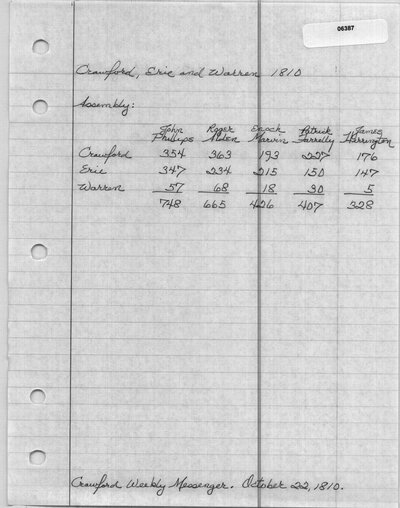 06387
Crawford, Erie and Warren 1810
Assembly:
John Roger Enoch Patrick James
Phillips Alden Marvin Farrelly Herrington
Crawford 354 363 193 227 176
Erie 347 234 215 150 147
Warren 57 68 18 30 5
748 665 426 407 328
Crawford Weekly Messenger. October 22, 1810.